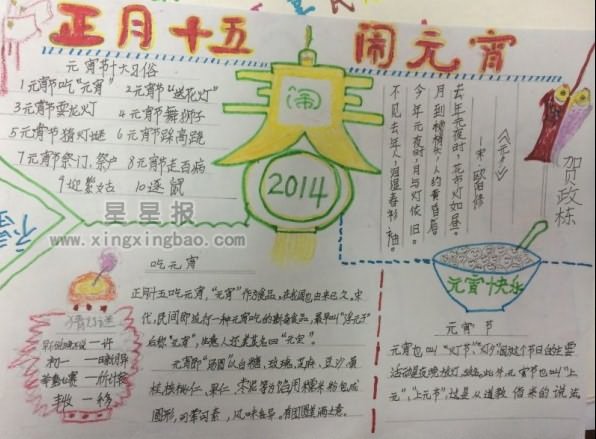 正月十五 闹元宵
元宵节十大习俗
1元宵节吃“元宵” 2元宵节“送花灯”
3元宵节耍龙灯 4元宵节舞狮子
5元宵节猜灯谜 6元宵节踩高跷
7元宵节祭门、祭户 8元宵节走百病
9迎紫姑 10逐鼠
春
闹
2014
《元夕》
——宋·欧阳修
去年元夜时,花市灯如昼。
月到柳梢头,人约黄昏后
今年元夜时,月与灯依旧。
不见去年人,泪湿春衫袖。
贺政栋
星星报
www.xingxingbao.com
吃元宵
正月十五吃元宵,“元宵”作为食品,在我国也由来已久,宋
代,民间即流行一种元宵吃的新奇食品,最早叫“浮元子”
后称“元宵”,生意人还美其名曰“元宝”。
元宵即“汤圆”以白糖、玫瑰、芝麻、豆沙、黄
桂、核桃仁、果仁、枣泥等为馅用糯米粉包成
圆形,可荤可素,风味各异。有团圆美满之意。
猜灯谜
元宵快乐
元宵节
元宵也叫“灯节”、
活动是夜晚放灯
元”、“上元节”,这是从道教借来的说法